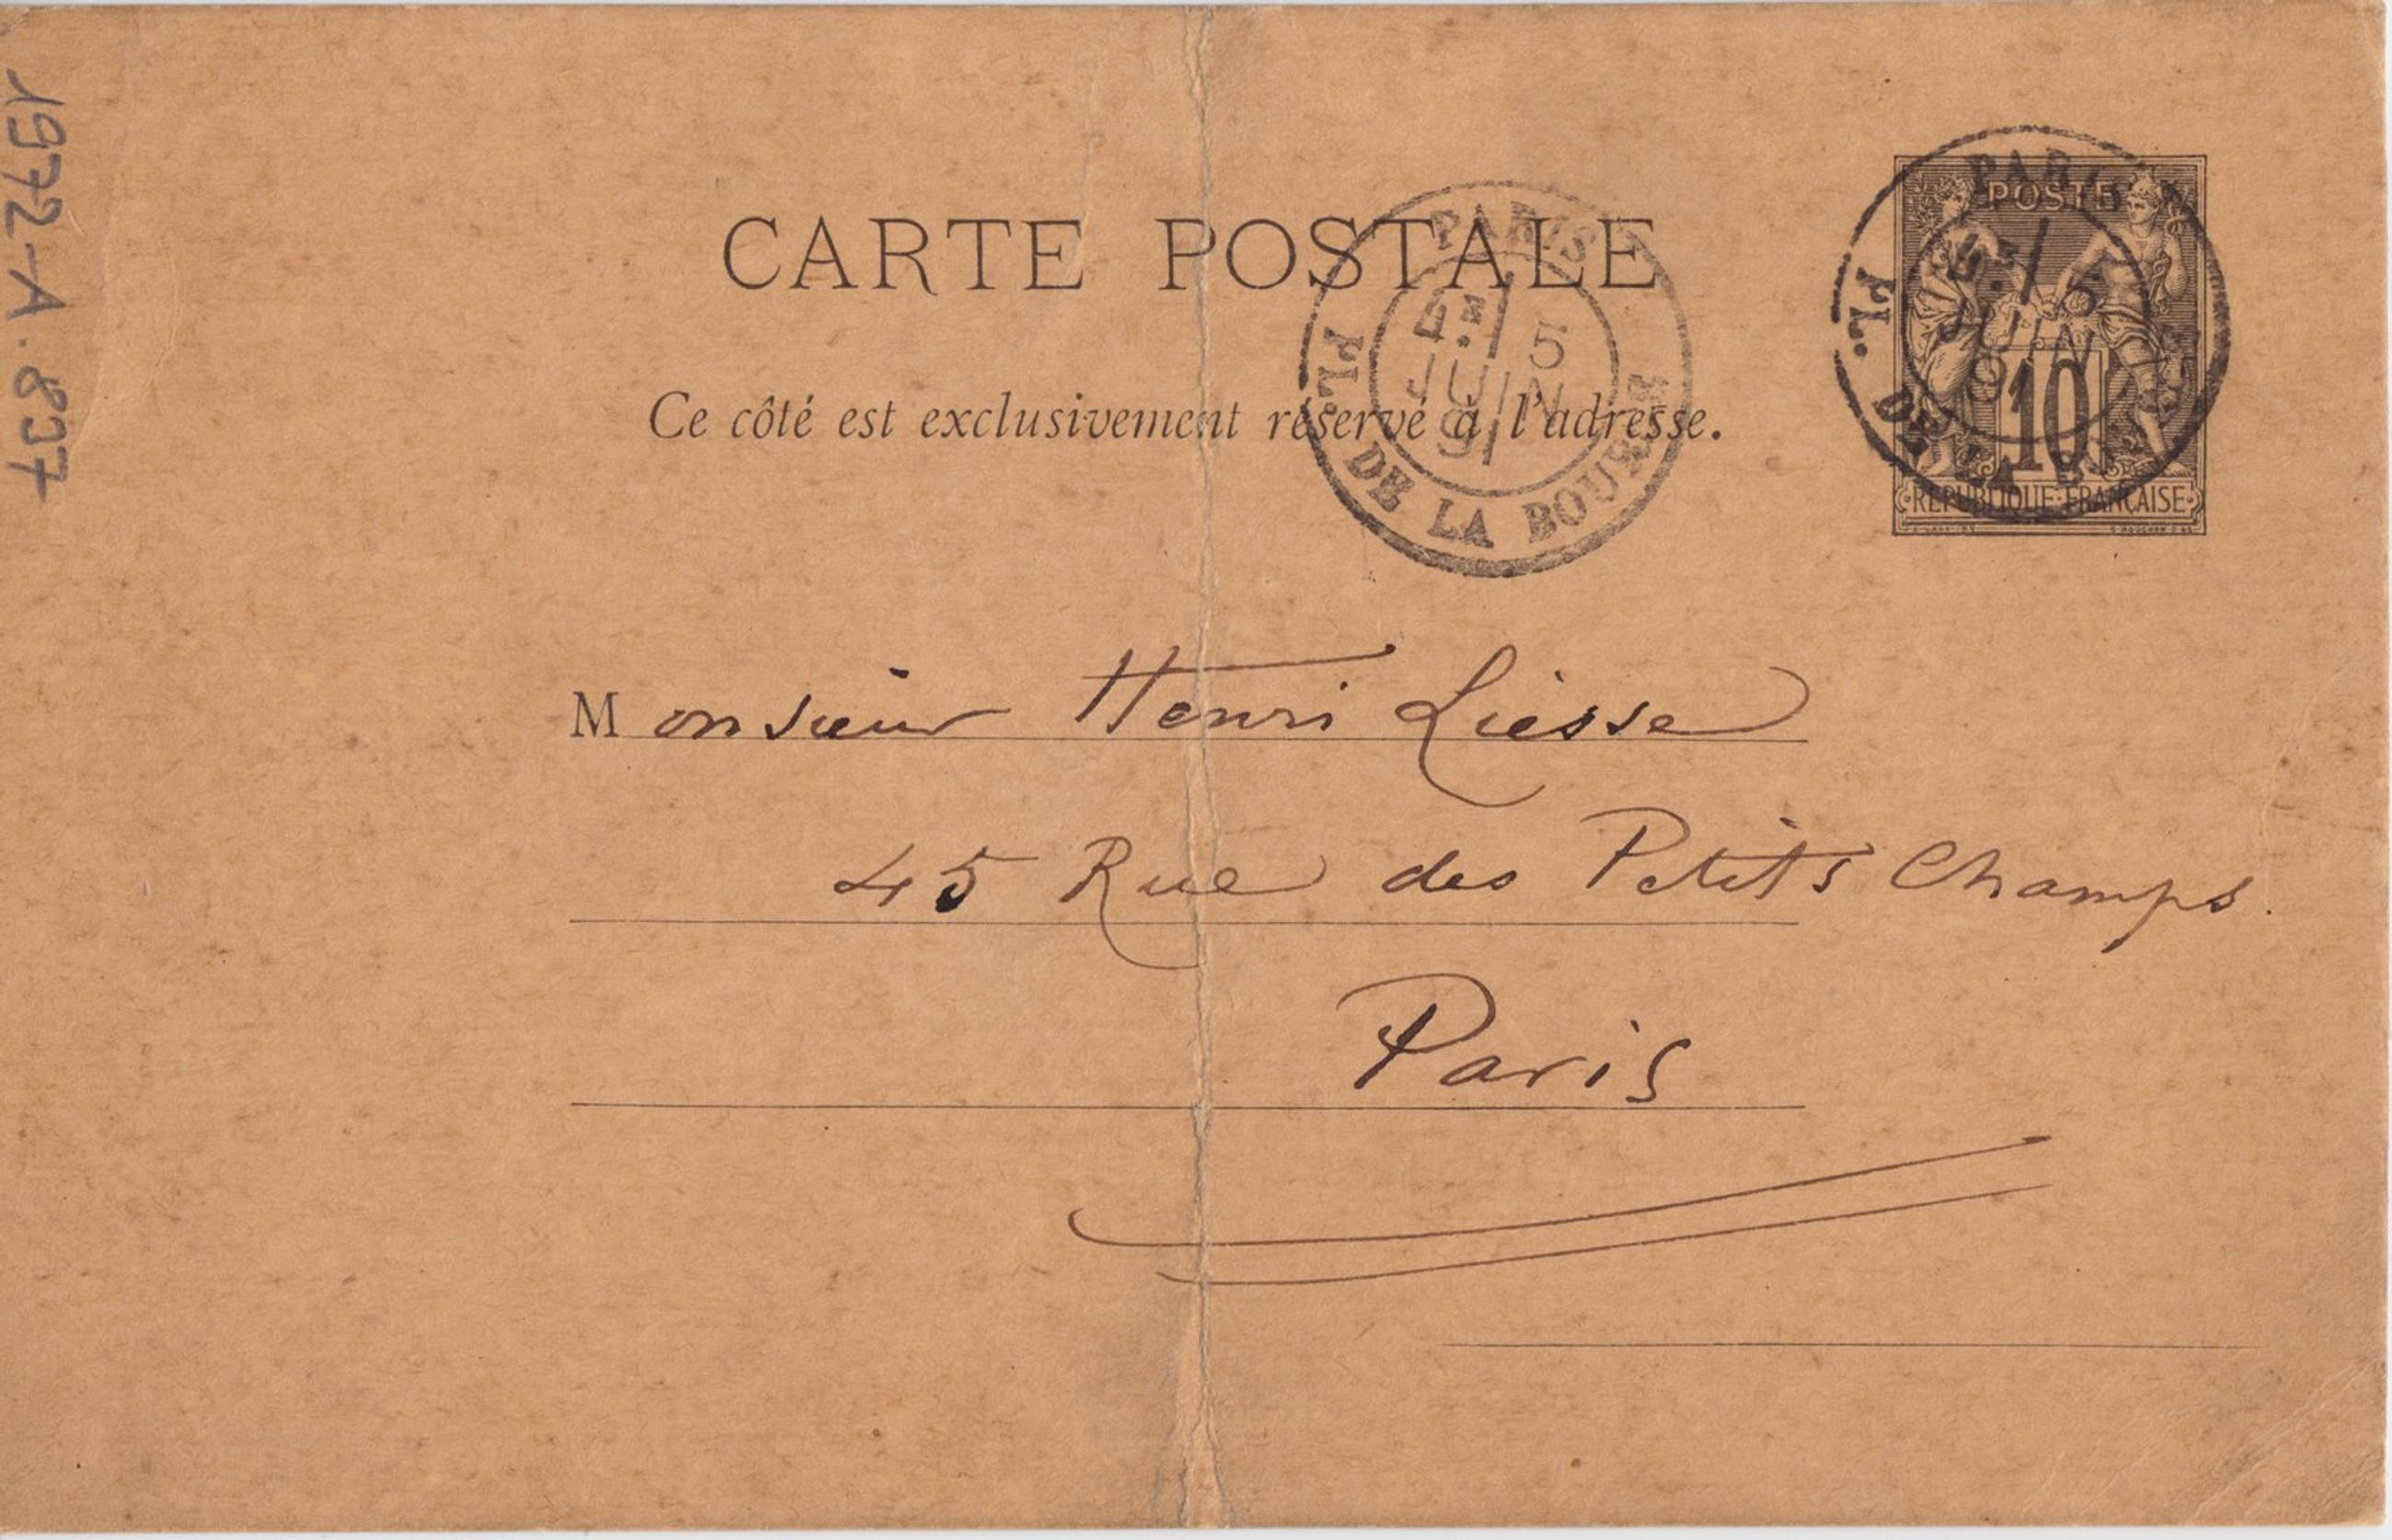 1972-A.837
CARTE POSTALE
Ce côté est exclusivement réservé à l'adresse.
PARIS
4E 5
JUIN
91
PL. DE LA BOURSE
PARIS
POSTE
5
JUIN
10
PL. DE LA BOURSE
REPUBLIQUE FRANÇAISE
Monsieur Henri Liesse
45 Rue des Petits Champs.
Paris